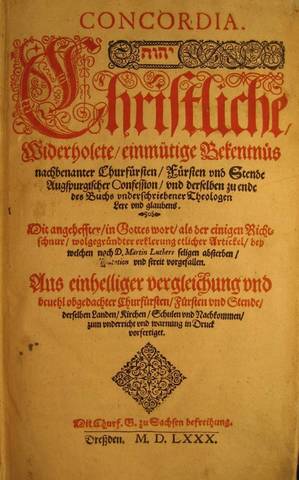 CONCORDIA.
יהוה
Christliche,
Widerholete/ einmütige Bekentnüs
nachbenanter Churfürsten/ Fürsten und Stende
Augspurgischer Confession/ und derselben zu ende
des Buchs underschriebener Theologen
Lere und glaubens.
Mit angeheffter/ in Gottes wort/ als der einigen Richt-
schnur/ wolgegründter erklerung etlicher Artickel/ bey
welchen nach D. Martin Luthers seligen absterben/
Disputation und streit vorgefallen.
Aus einhelliger vergleichung und
bevehl obgedachter Churfürsten/ Fürsten und Stende/
derselben Landen/ Kirchen/ Schulen und Nachkommen/
zum underricht und warnung in Druck
vorfertiget.
Mit Churf. G. zu Sachsen befreihung.
Dreßden. M. D. LXXX.